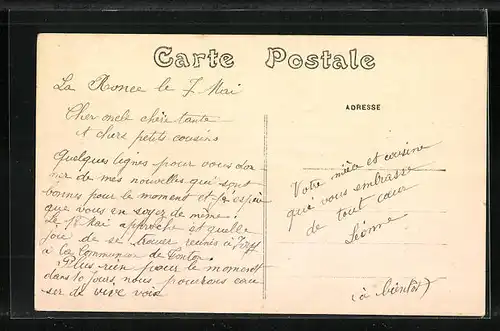 Carte Postale
La Ronce le 7 Mai
Cher oncle chère tante
et chers petits cousins
Quelques lignes pour vous don-
ner de mes nouvelles qui sont
bonnes pour le moment et j'espère
que vous en soyez de même.
Le 18 Mai approche et quelle
joie de se trouver réunis à
à la Communion de
Plus rien pour le moment
dans 10 jours nous pourrons cau
ser de vive voix
ADRESSE
Votre nièce et cousine
qui vous embrasse
de tout cœur
Léonne
(à bientôt)